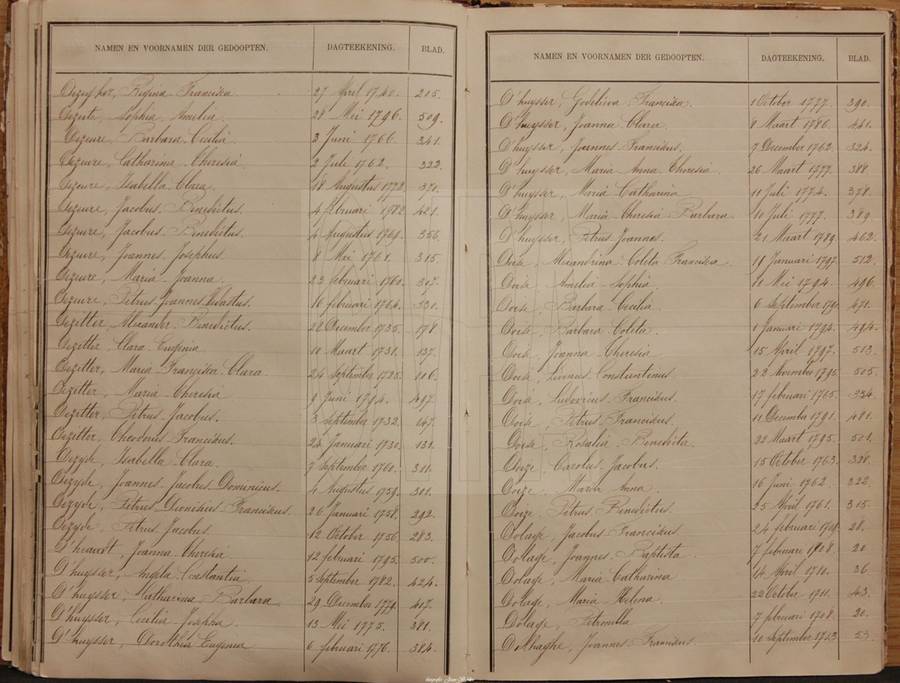 NAMEN EN VOORNAMEN DER GEDOOPTEN. DAGTEEKENING. BLAD.
Regina Francisca 27 April 1740. 215.
Sophia Amelia 28 Mei 1796. 509.
Dezeure, Barbara Cecilia 2 Juni 1766. 341.
Dezeure, Catharina Theresia 2 Juli 1762. 322.
Dezeure, Isabella Clara 18 Augustus 1772. 371.
Dezeure, Jacobus Benedictus 4 februari 1782. 421.
Dezeure, Jacobus Benedictus. 4 Augustus 1769. 356.
Dezeure, Joannes Josephus 8 Mei 1761. 315.
Dezeure, Maria Joanna 23 februari 1760. 307.
Dezeure, Petrus Joannes 16 februari 1764. 331.
Dezitter, Benedictus. 22 December 1735. 178.
Dezitter Clara Eugenia 10 Maart 1731. 137.
Dezitter, Maria Francisca Clara 24 September 1725. 106.
Dezitter, Maria Theresia 9 Juni 1794. 497.
Dezitter, Petrus Jacobus. 3 September 1732. 147.
Dezitter, Theodorus Franciscus. 24 Januari 1730. 131.
Isabella Clara. 7 September 1761. 311.
Joannes Jacobus Dominicus. 4 Augustus 1759. 301.
Petrus Dionisius Franciscus 26 Januari 1758. 292.
Petrus Jacobus. 12 October 1756. 283.
Joanna Theresia 12 februari 1795. 500.
D'huysser, Angela Constantia 5 September 1782. 424.
D'huysser, Catharina Barbara 29 December 1779. 407.
D'huysser, Cecilia Josepha 13 Mei 1775. 381.
D'huysser, Dorothea Eugenia 6 februari 1776. 384.
NAMEN EN VOORNAMEN DER GEDOOPTEN. DAGTEEKENING. BLAD.
D'huysser, Godeliva Francisca. 1 October 1777. 390.
D'huysser, Joanna Clara 8 Maart 1786. 441.
D'huysser, Joannes Franciscus. 7 December 1762. 324.
D'huysser, Maria Anna Theresia 26 Maart 1777. 388.
D'huysser, Maria Catharina 11 Juli 1774. 378.
D'huysser, Maria Theresia Barbara 10 Juli 1777. 389.
D'huysser, Petrus Joannes. 21 Maart 1789. 462.
Colita Francisca 11 Januari 1797. 512.
Amelia Sophia 11 Mei 1794. 496.
Barbara Cecilia 6 September 471.
Barbara Colita. 1 Januari 1794. 494.
Joanna Theresia 15 April 1797. 513.
Livinus Constantinus 22 November 1795. 505.
Ludovicus Franciscus. 17 februari 1765. 334.
Petrus Franciscus 11 December 1791. 481.
Rosalia Benedicta 22 Maart 1795. 501.
Carolus Jacobus. 15 October 1763. 328.
Maria Anna 16 Juni 1762. 322.
Petrus Benedictus 25 April 1761. 315.
Dolage, Jacobus Franciscus 24 februari 28.
Dolage, Joannes Baptista 7 februari 1708. 20.
Dolage, Maria Catharina 14 April 1710. 36.
Dolage, Maria Helena 22 October 1711. 43.
Dolage, Petronilla 7 februari 1708. 20.
Joannes Franciscus 10 September 1713 53.